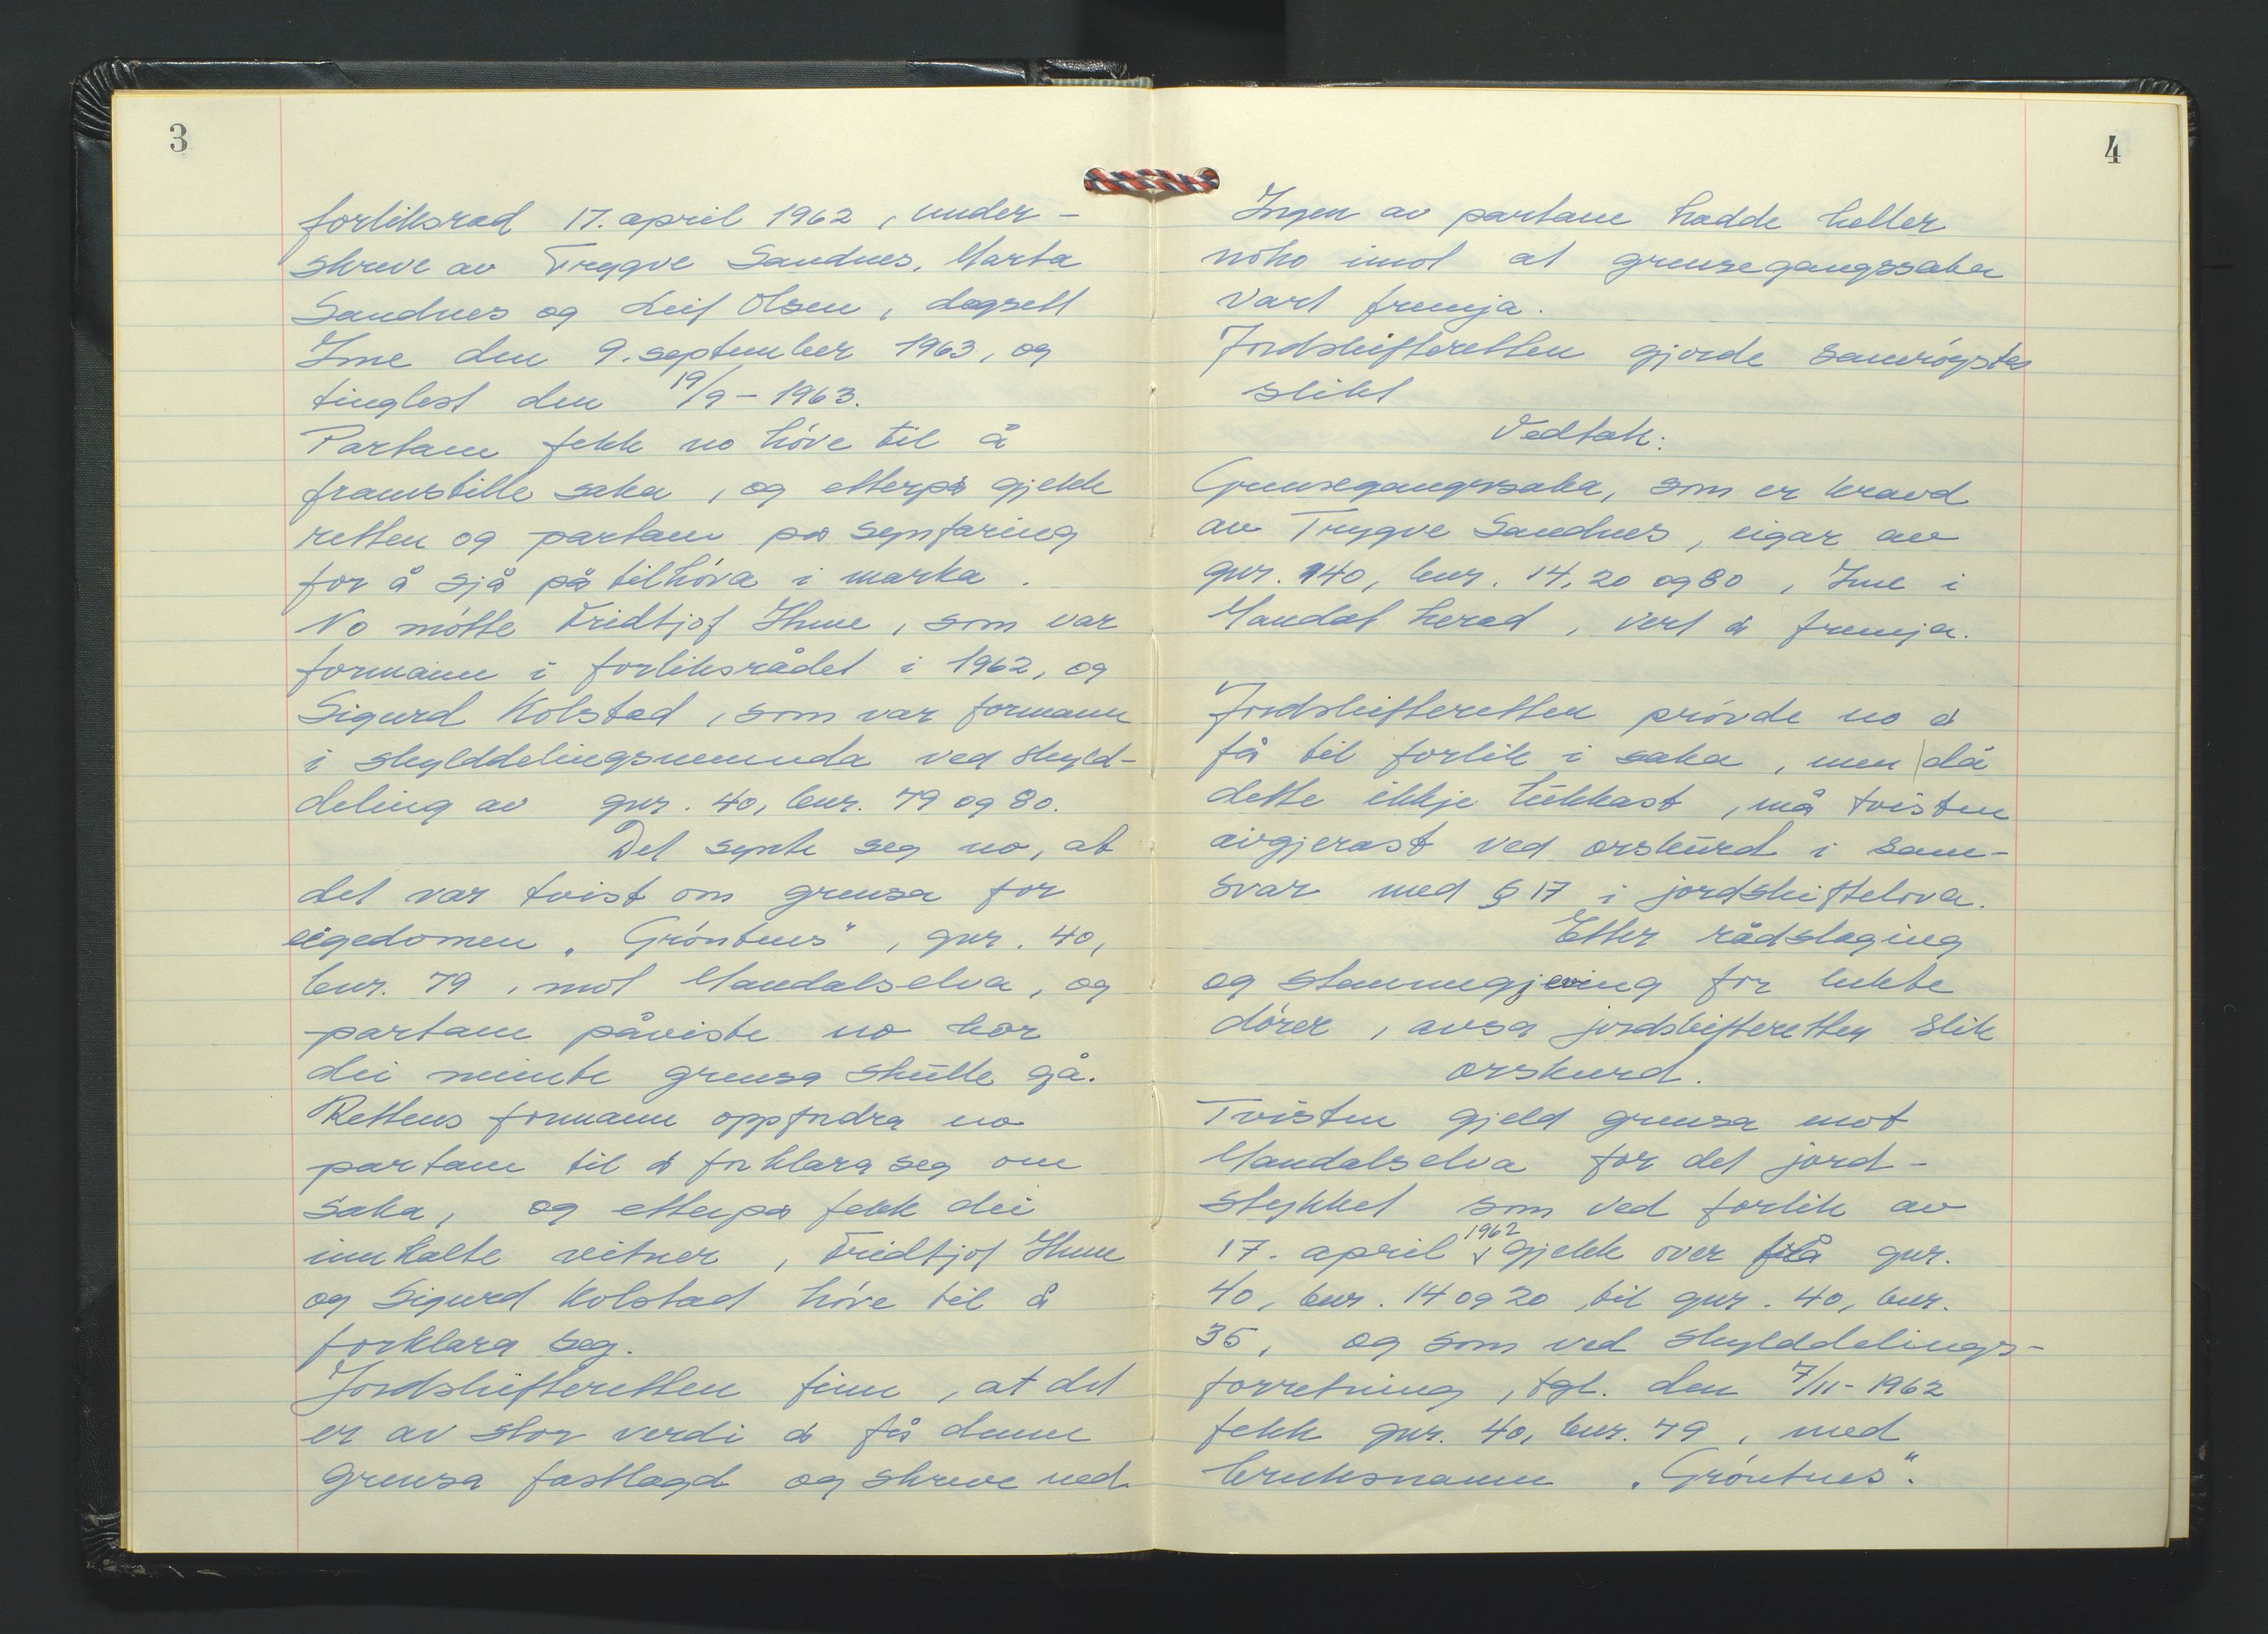 3
forliksrad 17. april 1962, under-
skreve av Trygve Sandnes, Marta
Sandnes og Leif Olsen, dagsett
Ime den 9. september 1963, og
tinglest den 19/9 - 1963.
Partane fekk no höve til å
framstille saka, og etterpå gjekk
retten og partane på synfaring
for å sjå på tilhöva i marka.
No mötte Fridtjof Ihme, som var
formann i forliksrådet i 1962, og
Sigurd Kolstad, som var formann
i skylddelingsnemnda ved skyld-
deling av gnr. 40, bnr. 79 og 80.
Det synte seg no, at
det var tvist om grensa for
eigedomen „Gröntnes", gnr. 40,
bnr. 79, mot Mandalselva, og
partane påviste no kor
dei meinte grensa skulle gå.
Rettens formann oppfordra no
partane til å forklara seg om
saka, og etterpå fekk dei
innkalte vitner, Fridtjof Ihme
og Sigurd Kolstad höve til å
forklara seg.
Jordskifteretten finn, at det
er av stor verdi å få denne
grensa fastlagd og skreve ned.
4
Ingen av partane hadde heller
noko imot at grensegangssaka
vart fremja.
Jordskifteretten gjorde samröystes
slikt
Vedtak:
Grensegangssaka, som er kravd
av Trygve Sandnes, eigar av
gnr. 140, bnr. 14, 20 og 80, Ime i
Mandal herad, vert å fremja.
Jordskifteretten prövde no å
få til forlik i saka, men då
dette ikkje lukkast, må tvisten
avgjerast ved orskurd i sam-
svar med § 17 i jordskiftelova.
Etter rådslaging
og stemmegjeving for lukte
dörer, avsa jordskifteretten slik
orskurd.
Tvisten gjeld grensa mot
Mandalselva for det jord-
stykket som ved forlik av
17. april 1962 gjekk over frå gnr.
40, bnr. 14 og 20, til gnr. 40, bnr.
35, og som ved skylddelings-
forretning, tgl. den 7/11 - 1962
fekk gnr. 40, bnr. 79, med
bruksnamn „Gröntnes".